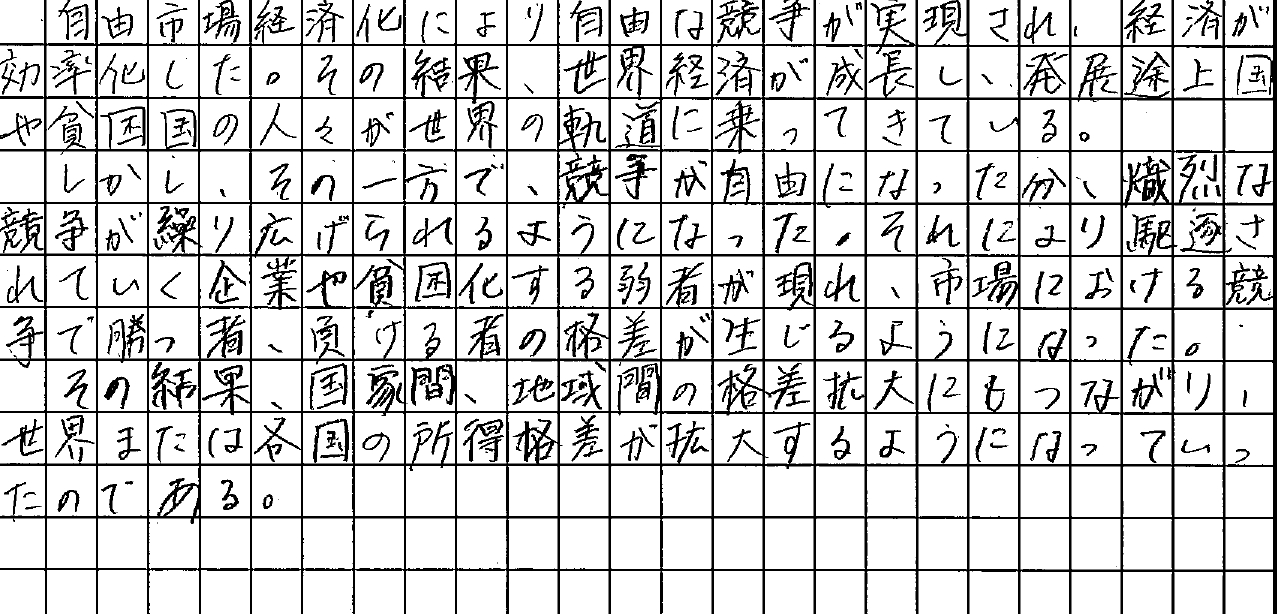 自由市場経済化により自由な競争が実現され、経済が
効率化した。その結果、世界経済が成長し、発展途上国
や貧困国の人々が世界の軌道に乗ってきている。
しかし、その一方で、競争が自由になった分、熾烈な
競争が繰り広げられるようになった。それにより駆逐さ
れていく企業や貧困化する弱者が現れ、市場における競
争で勝つ者、負ける者の格差が生じるようになった。
その結果、国家間、地域間の格差拡大にもつながり、
世界または各国の所得格差が拡大するようになっていっ
たのである。